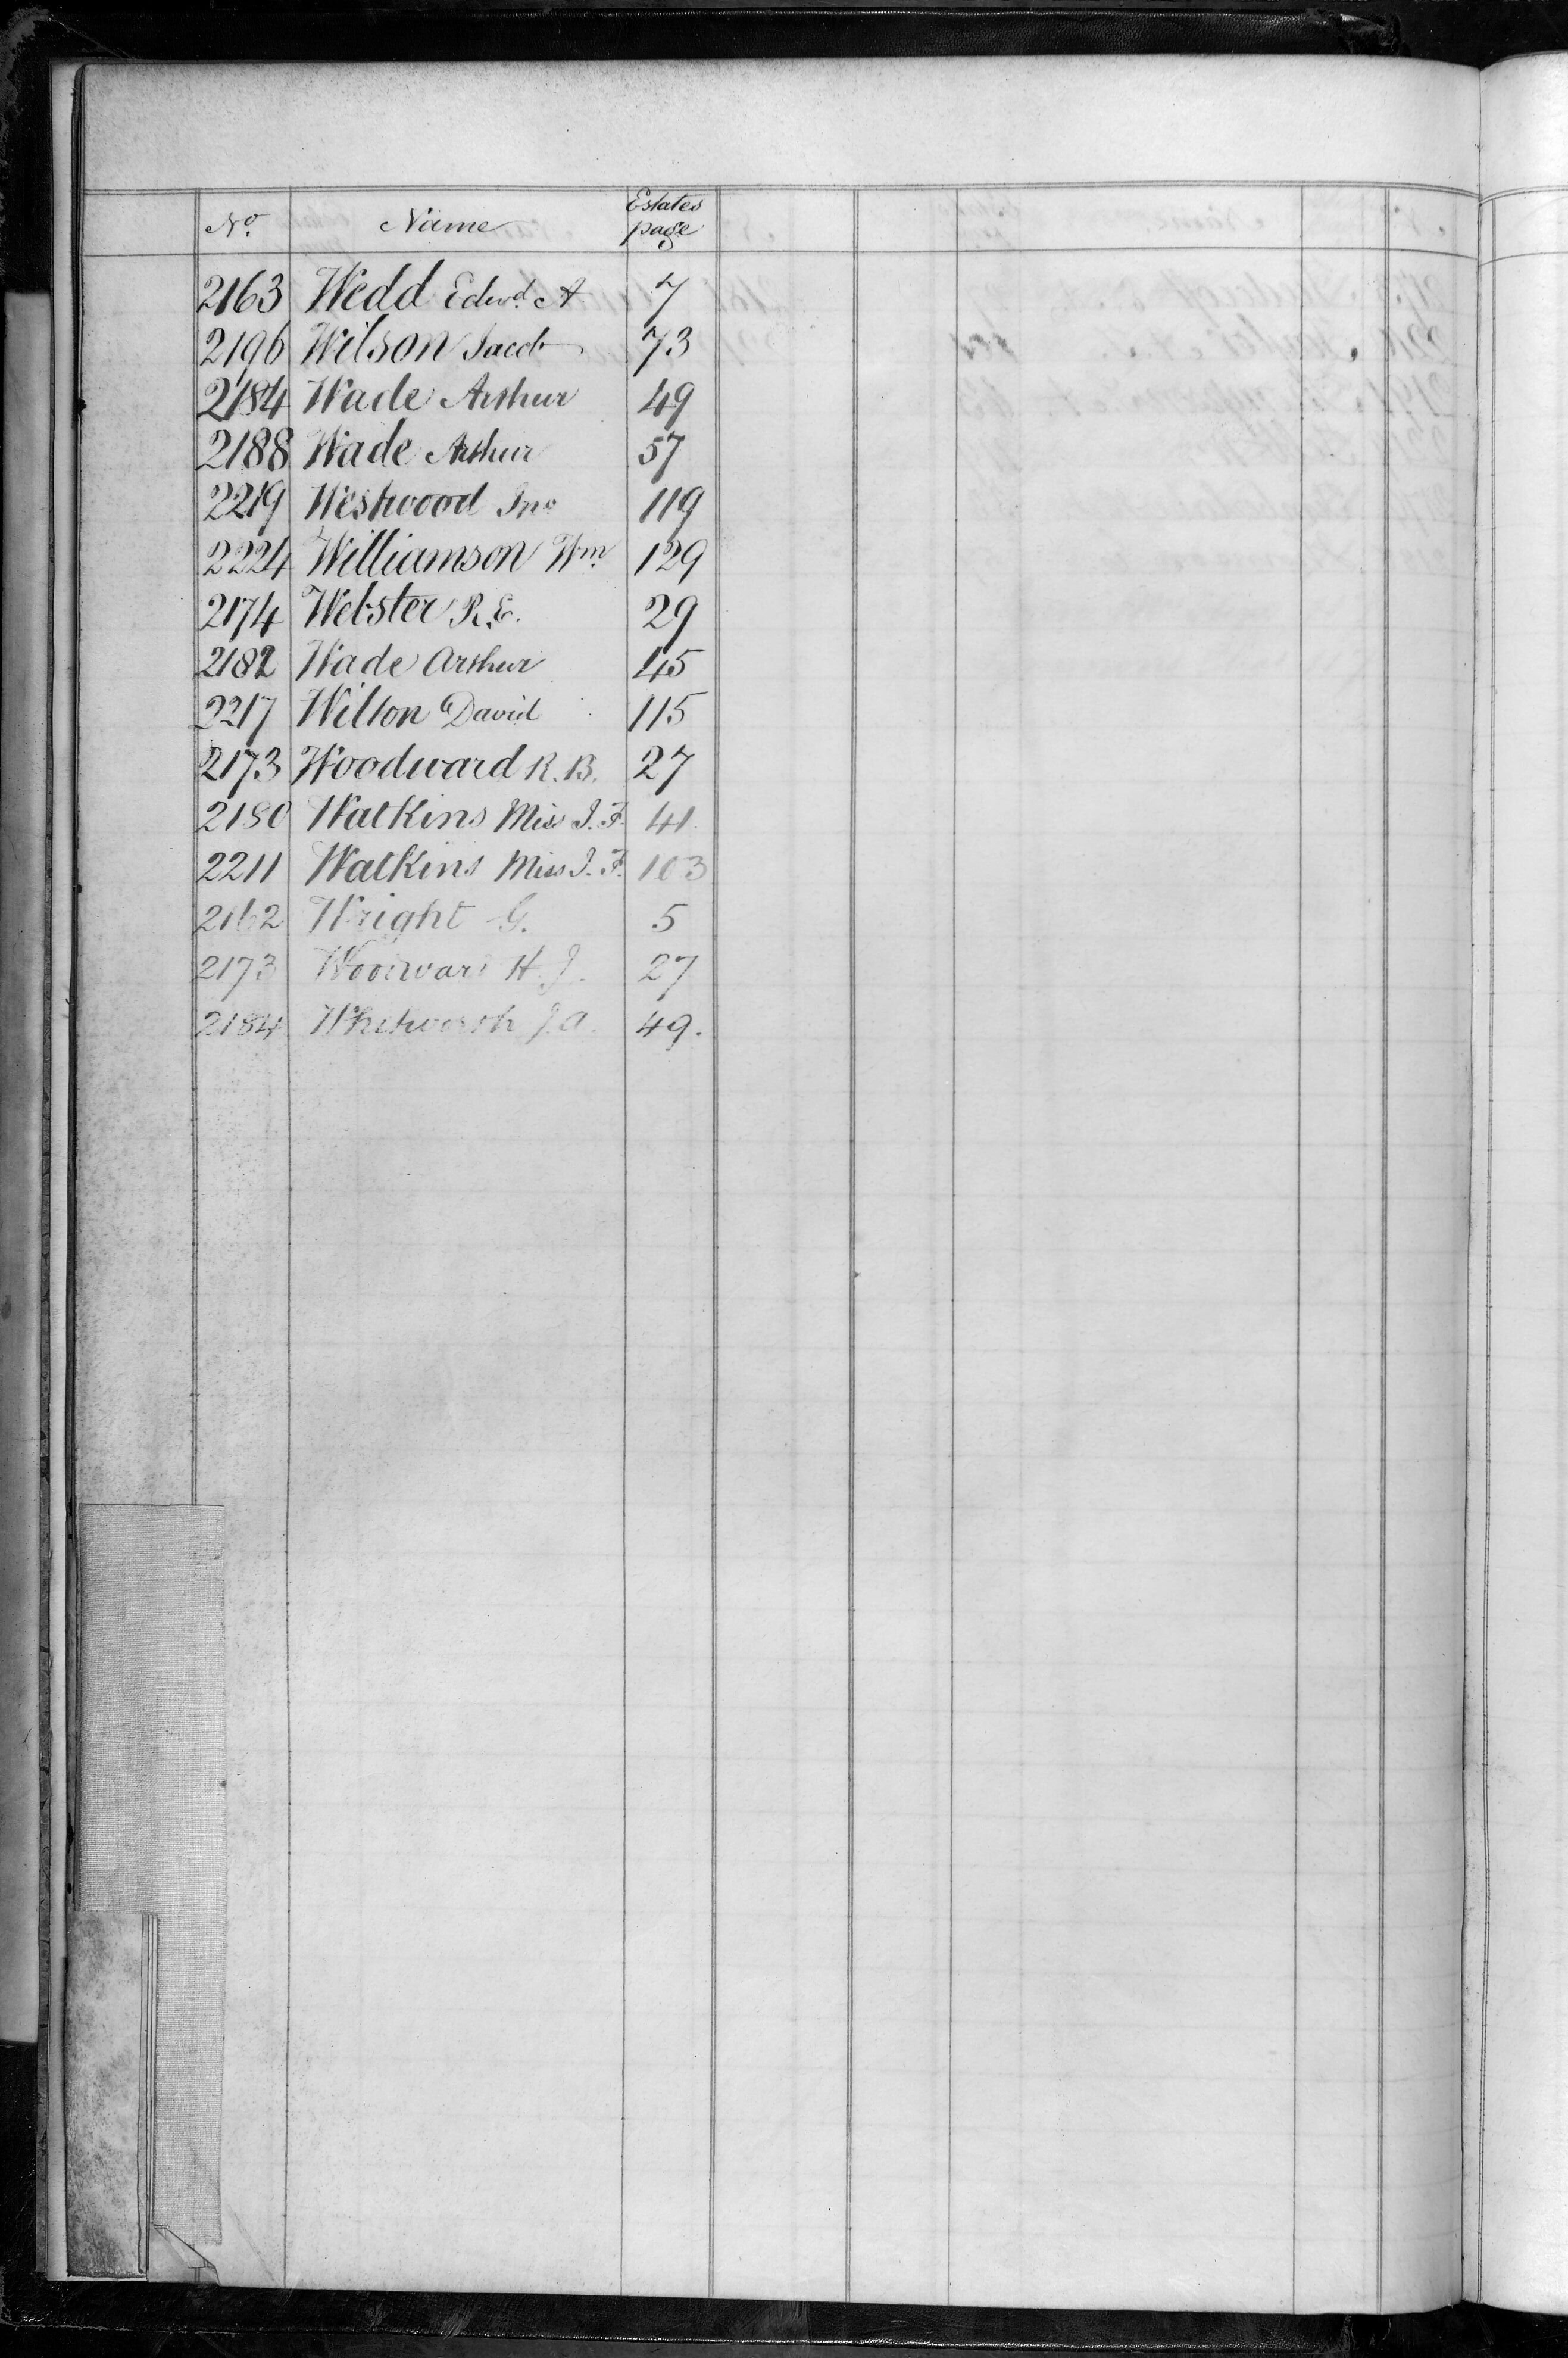 No. Name Estates page
2163 Wedd Edwd. A 7
2196 Wilson Jacob 73
2184 Wade Arthur 49
2188 Wade Arthur 57
2219 Westwood Jno 119
2224 Williamson Wm. 129
2174 Webster R.E. 29
2182 Wade Arthur 45
2217 Wilton David 115
2173 Woodward R. B. 27
2180 Watkins Miss J. F. 41
2211 Watkins Miss J. F. 103
2162 Wright G. 5
2173 Woodward H. J. 27
2184 Whitworth J. A. 49.